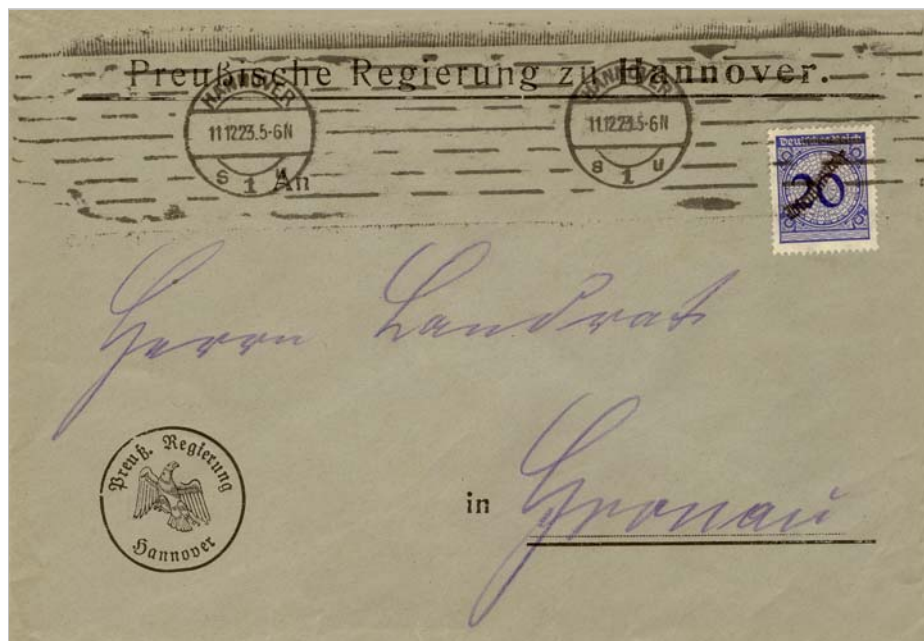 Preußische Regierung zu Hannover.
HANNOVER
11.12.23.5-6N
s 1 u
HANNOVER
11.12.23.5-6N
s 1 u
An
Deutsches Reich
20
Dienstmarke
Herrn Landrat
Preuß. Regierung
Hannover
in Gronau